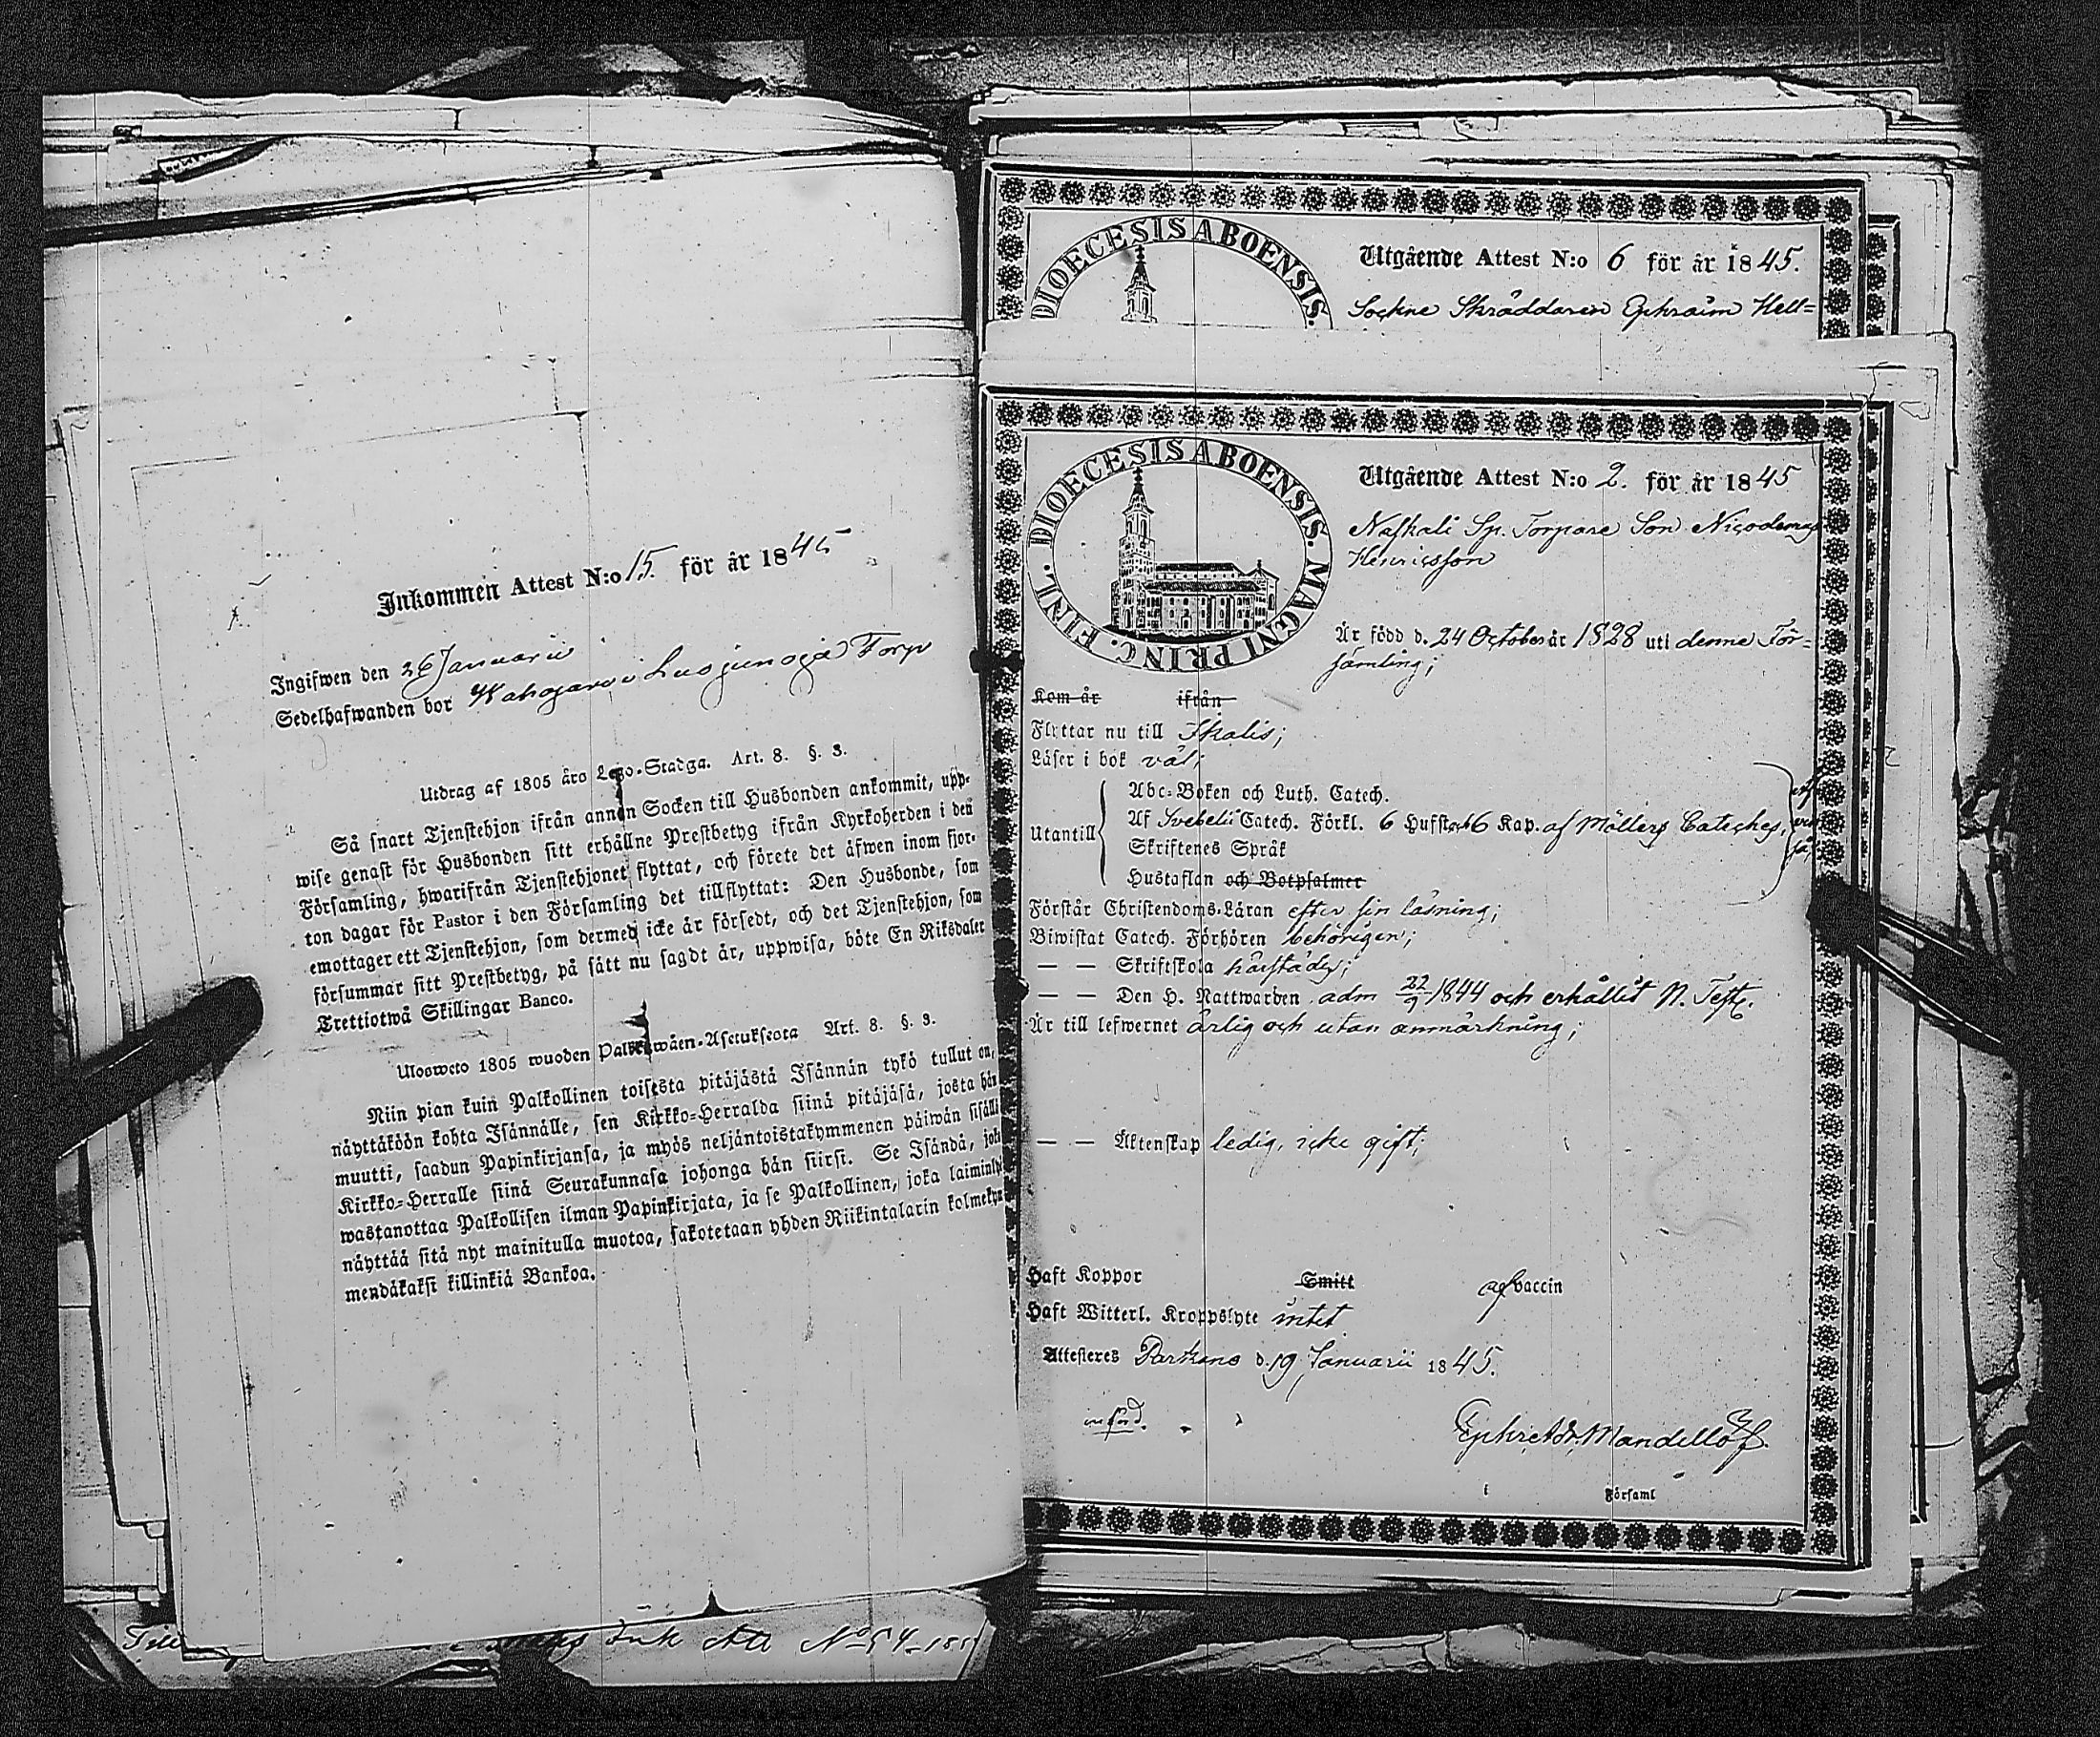 Inkommen Attest N:o 15. för år 1845
Ingifwen den 26 Januarii
Sedelhafwanden bor Torp
Utdrag af 1805 års Lego-Stadga. Art. 8. §. 3.
Så snart Tjenstehjon ifrån annan Socken till Husbonden ankommit, upp-
wise genast för Husbonden sitt erhållne Prestbetyg ifrån Kyrkoherden i den
Församling, hwarifrån Tjenstehjonet flyttat, och förete det äfwen inom fjor-
ton dagar för Pastor i den Församling det tillflyttat: Den Husbonde, som
emottager ett Tjenstehjon, som dermed icke är försedt, och det Tjenstehjon, som
försummar sitt Prestbetyg, på sätt nu sagdt är, uppwisa, böte En Riksdaler
Trettiotwå Skillingar Banco.
Ulosweto 1805 wuoden Palkkawäen-Asetuksesta Art. 8. §. 3.
Niin pian kuin Palkollinen toisesta pitäjästä Isännän tykö tullut on,
näyttäköön kohta Isännälle, sen Kirkko-Herralda siinä pitäjäsä, josta hän
muutti, saadun Papinkirjansa, ja myös neljäntoistakymmenen päiwän sisällä
Kirkko-Herralle siinä Seurakunnasa johonga hän siirsi. Se Isändä, joka
wastanottaa Palkollisen ilman Papinkirjata, ja se Palkollinen, joka laiminlyö
näyttää sitä nyt mainitulla muotoa, sakotetaan yhden Riikintalarin kolmekym-
mendäkaksi killinkiä Bankoa.
Till Ink Att No 54
DIOECESIS ABOENSIS.
Utgående Attest N:o 6 för år 1845.
Sockne Skräddaren Ephraim Hell=
DIOECESIS ABOENSIS. MAGNI PRINC. FINL.
Utgående Attest N:o 2. för år 1845
Naskali Sp. Torpare Son Nicodemus
Henricsson
Är född d. 24 October år 1828 uti denne För=
samling;
Kom år ifrån
Flyttar nu till Ikalis;
Läser i bok väl;
Utantill
Abc-Boken och Luth. Catech.
Af Svebelii Catech. Förkl. 6 Hufst. 6 Kap. af Möllers Cateches,
Skriftenes Språk
Hustaflan och Botpsalmer
Förstår Christendoms-Läran efter sin läsning;
Biwistat Catech. Förhören behörigen;
— — Skriftskola härstädes;
— — Den H. Nattwarden adm 22/9 1844 och erhållit N. Test.
Är till lefwernet ärlig och utan anmärkning;
— — Äktenskap ledig, icke gift;
Haft Koppor Smitt af vaccin
Haft Witterl. Kroppslyte intet
Attesteres Parkano d. 19 Januarii 1845.
införd.
Mandellöf.
i Församl